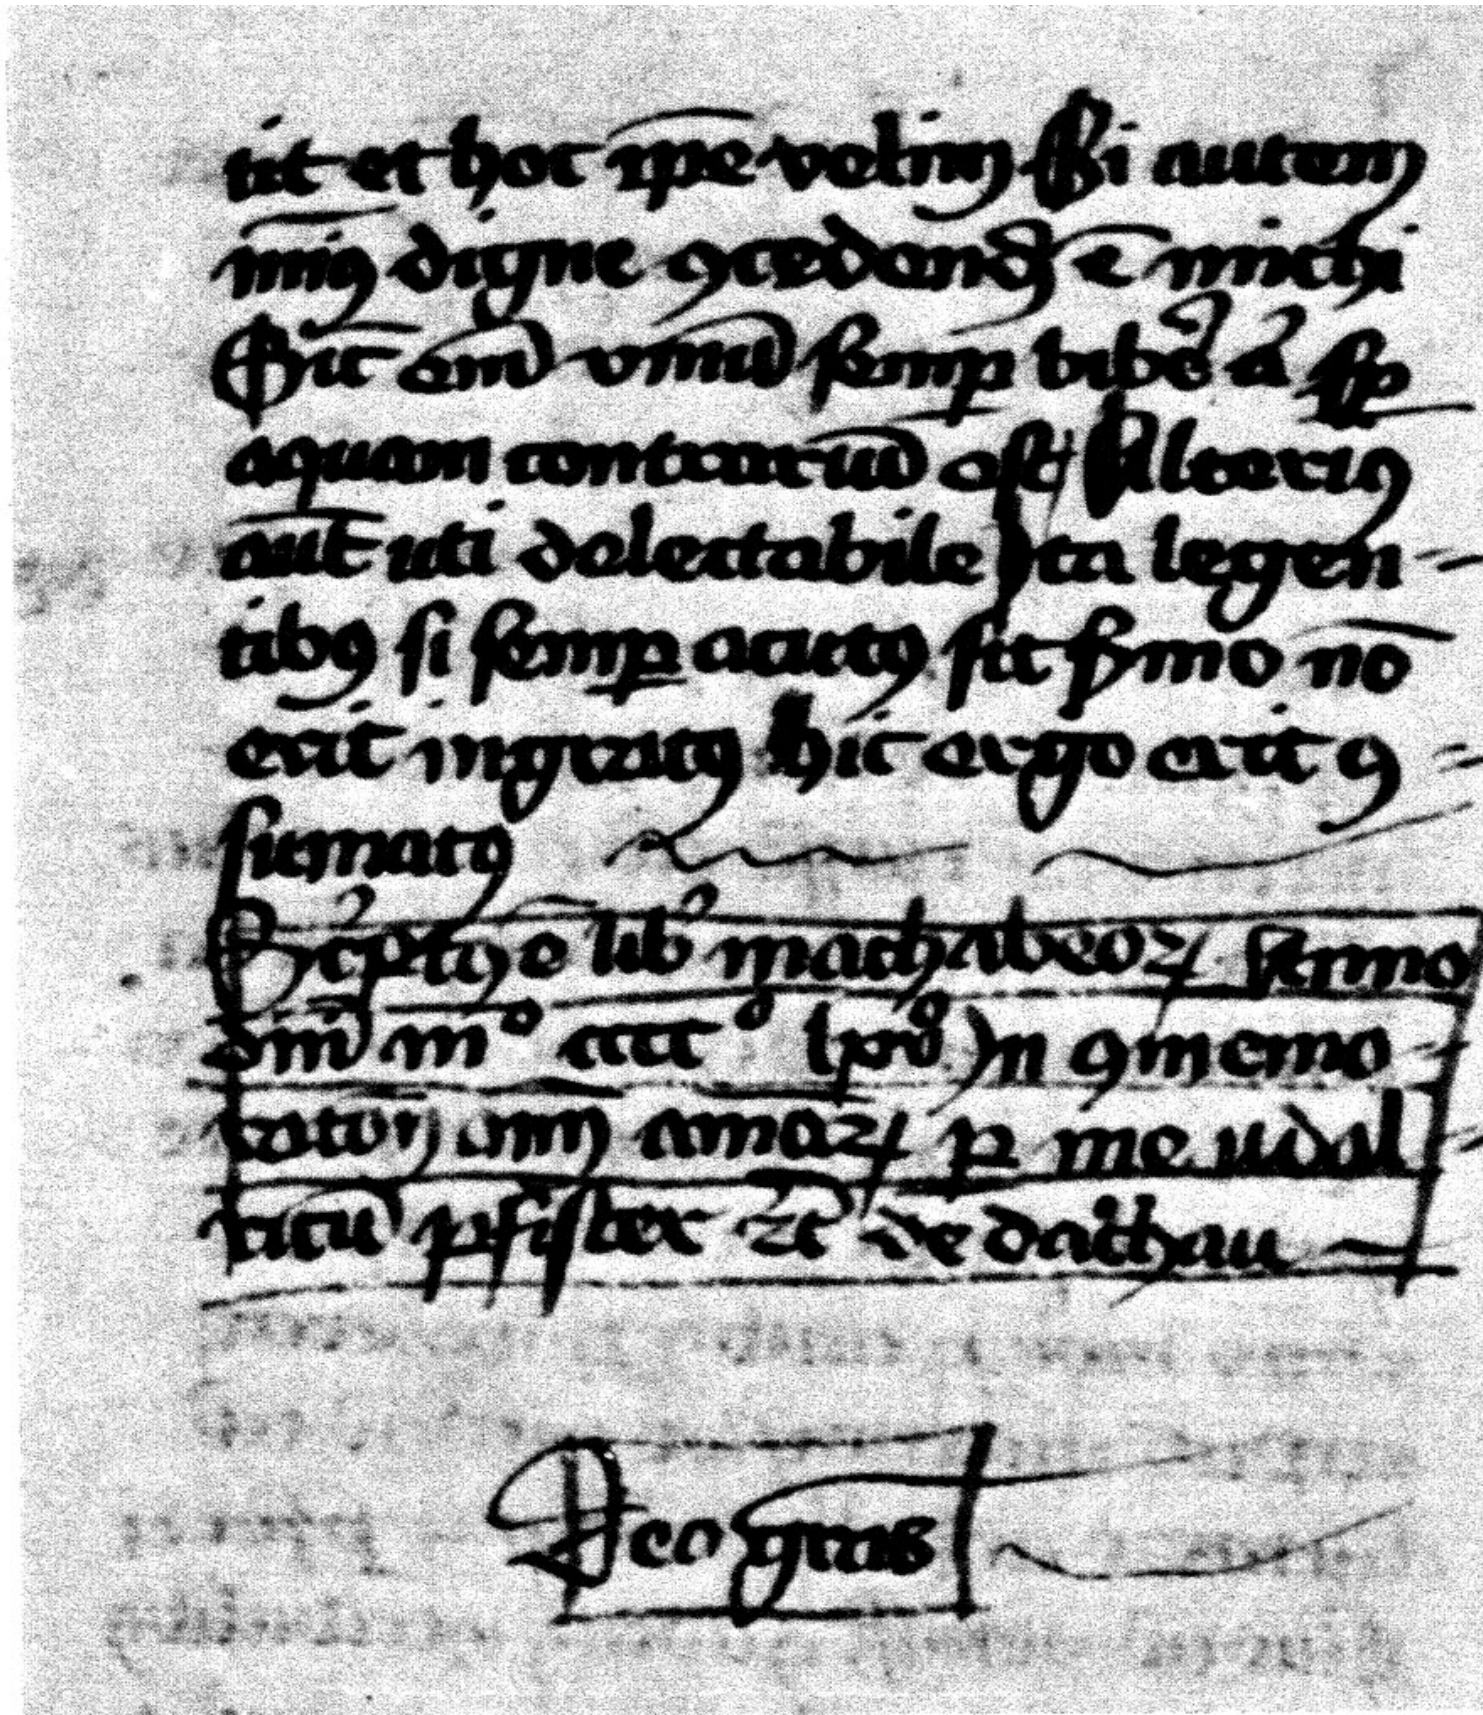 tit et hoc ip̄e velimꝰ Si autem
mīꝰ digne ꝯcedendū ē michi
Sic̄ enī vinū semꝑ bibe᷒ aͧ sꝑ
aquam contrariū est Alteriꝰ
aut̄ uti delectabile Ita legen-
tibꝰ si semꝑ acutꝰ sit s̄mo nō
erit ingratꝰ hic ergo erit ꝯ=
sumatꝰ
Sc͛ptꝰ ē lib͛ machabeoꝝ sermo
dnī mº cccº In ꝯmemo=
ꝑ me udal=
ricū pfister ⁊c̄ de dachau
Deo gr̄as